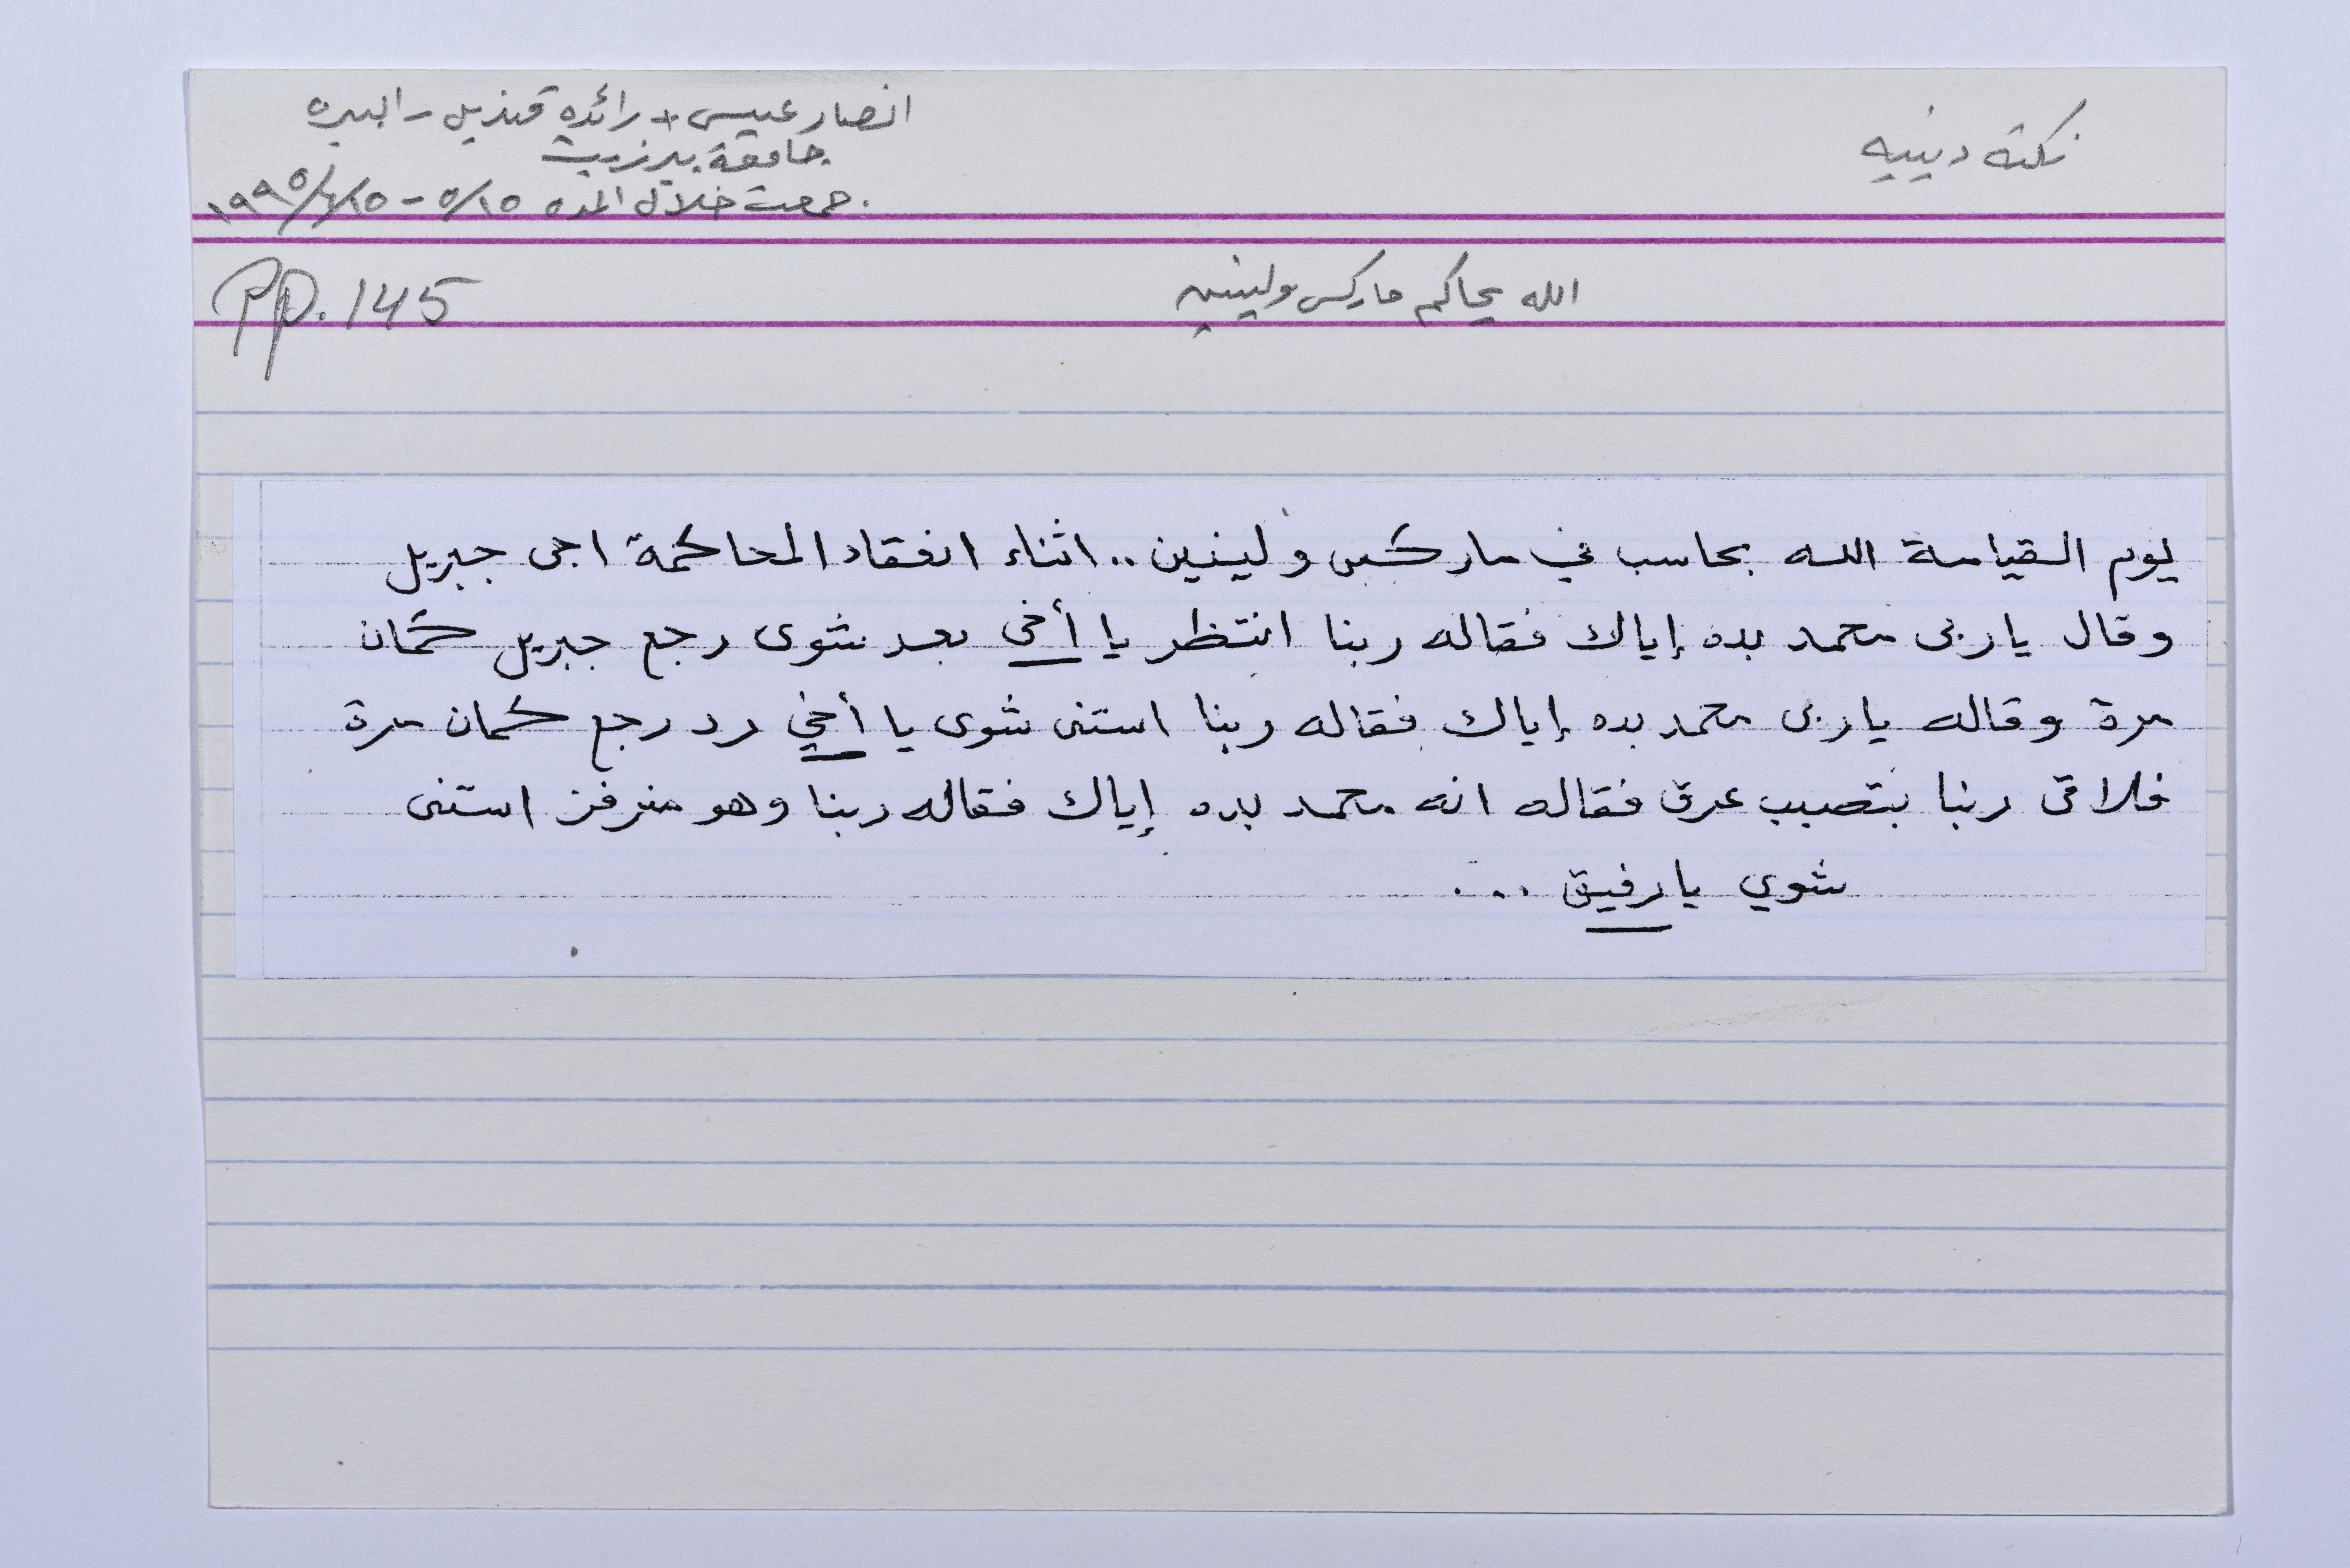 نكته دينيه
انصار عيسى + رائده قنديل - البيره
جامعة بيرزيت
جمعت خلال المده ٥/١٥ - ١٩٩٥/٦/١٥
الله يحاكم ماركس ولينين
PP. 145
يوم القيامة الله بحاسب في ماركس ولينين.. اثناء انعقاد المحاكمة اجى جبريل
وقال يا ربى محمد بده إياك فقاله ربنا انتظر يا أخي بعد شوى رجع جبريل كمان
مرة وقاله يا ربى محمد بده إياك فقاله ربنا استنى شوى يا أخي رد رجع كمان مرة
فلاقى ربنا بتصبب عرق فقاله انه محمد بده إياك فقاله ربنا وهو منرفز استنى
شوي يا رفيق ...